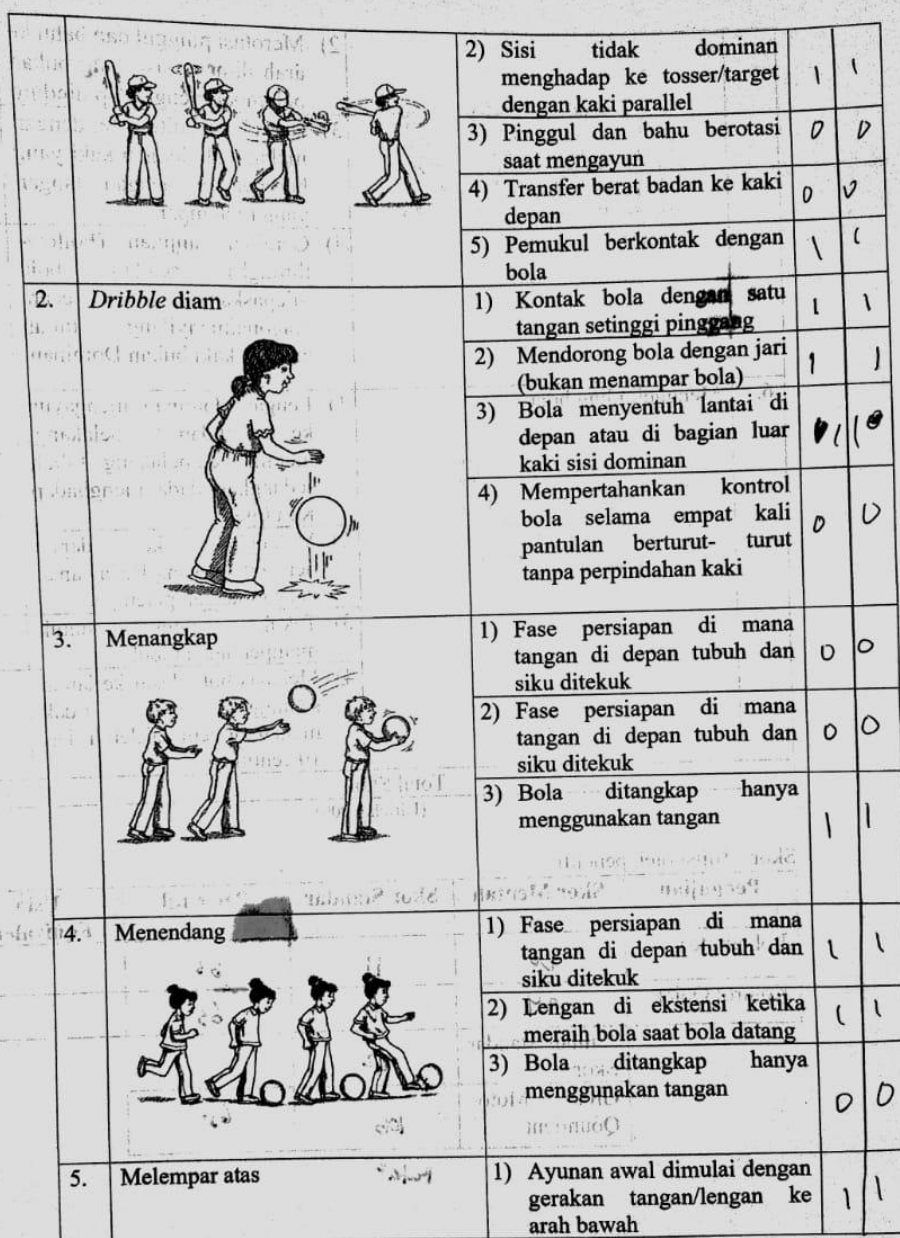 2) Sisi tidak dominan
menghadap ke tosser/target
dengan kaki parallel
1 1
3) Pinggul dan bahu berotasi
saat mengayun
0 0
4) Transfer berat badan ke kaki
depan
0 0
5) Pemukul berkontak dengan
bola
1 1
2. Dribble diam
1) Kontak bola dengan satu
tangan setinggi pinggang
1 1
2) Mendorong bola dengan jari
(bukan menampar bola)
1 1
3) Bola menyentuh lantai di
depan atau di bagian luar
kaki sisi dominan
1 1
4) Mempertahankan kontrol
bola selama empat kali
pantulan berturut- turut
tanpa perpindahan kaki
0 0
3. Menangkap
1) Fase persiapan di mana
tangan di depan tubuh dan
siku ditekuk
0 0
2) Fase persiapan di mana
tangan di depan tubuh dan
siku ditekuk
0 0
3) Bola ditangkap hanya
menggunakan tangan
1 1
4. Menendang
1) Fase persiapan di mana
tangan di depan tubuh dan
siku ditekuk
1 1
2) Lengan di ekstensi ketika
meraih bola saat bola datang
1 1
3) Bola ditangkap hanya
menggunakan tangan
0 0
5. Melempar atas
1) Ayunan awal dimulai dengan
gerakan tangan/lengan ke
arah bawah
1 1